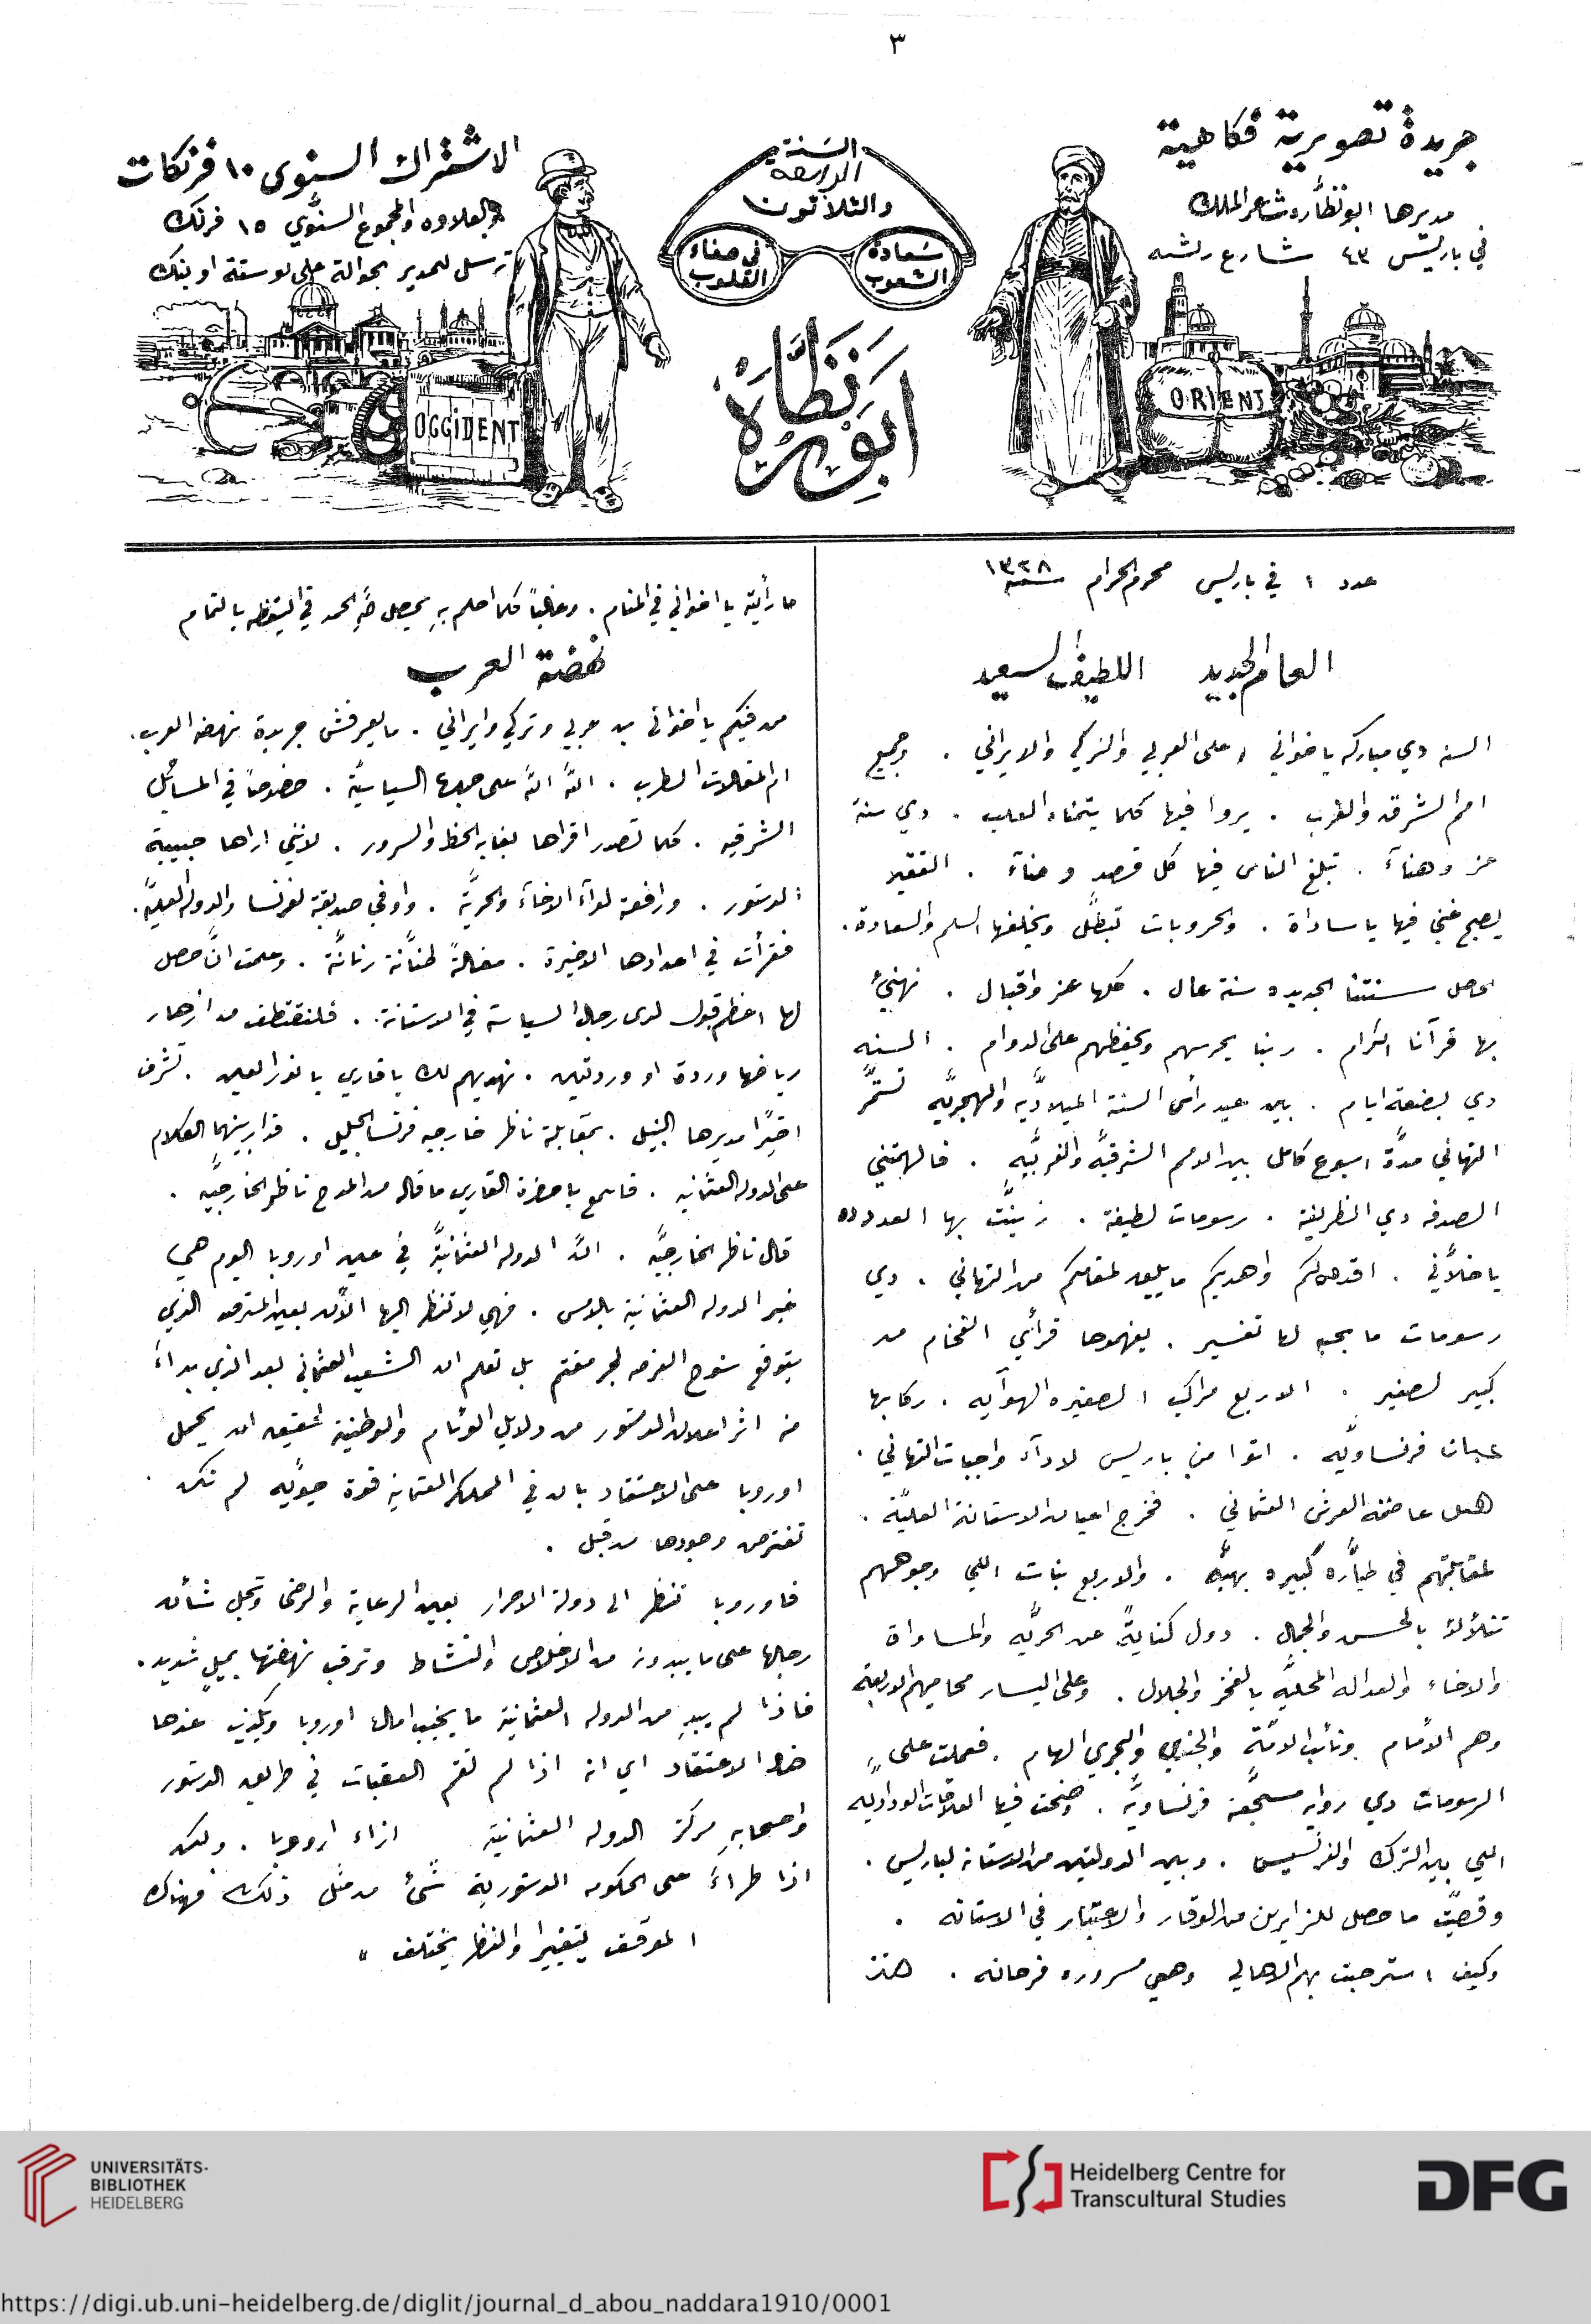 ٣
جريدة تصويرية فكاهية
مديرها ابو نظاره شاعر الملك
في باريس ٤٣ شارع رشه
السنة
الرابعة
والثلاثون
سعادة الشعوب
في صفاء القلوب
ابو نظارة
الاشتراك السنوى ١٠ فرنكات
وبالعلاوه والمجموع السنوي ١٥ فرنك
ترسل للمدير بحوالة على بوستة او بنك
ORIENT
OCCIDENT
عدد ١ في باريس محرم الحرام سنة ١٣٢٨
العام الجديد اللطيف السعيد
السنه دي مباركه ياخواني ، على العربي والتركي والايراني . وجميع
امم الشرق والغرب . يروا فيها كلما يتمناه القلب . دي سنة
عز وهنآء . تبلغ الناس فيها كل قصد ومناء . الفقير
يصبح غني فيها يا ساداة . والحروبات تبطل ويخلفها السلم والسعادة .
الحاصل سنتنا الجديده سنة عال . كلها عز واقبال . نهنئ
بها قرآنا الكرام . ربنا يحرسهم ويحفظهم على الدوام . السنه
دي بضعة ايام . بين عيد رأس السنة الميلاديه والهجريه تستمر
التهاني مدة اسبوع كامل بين الامم الشرقيه والغربيه . فالهمتني
الصدفه دي الظريفة . رسومات لطيفة . زينت بها العدد ده
ياخلاني . اقدم لكم واهديكم ما يليق لمقامكم من التهاني . دي
رسومات ما يحبه لها تفسير . يفهموها قرائي الفخام من
كبير لصغير . الاربع مراكب الصغيره الهوآيه . ركابها
عيان فرنساويه . اتوا من باريس لادآء واجبات التهاني .
هل عاصمة العرش العثماني . فخرج اعيان الاستانة العلية .
لمقابلتهم في طياره كبيره بهيه . والاربع بنات اللي وجوههم
تتلألأ بالحسن والجمال . دول كناية عن الحريه والمساواة
والاخاء والعداله المحليه بالفخر والجلال . وعلى اليسار محاميهم الاربعه
وهم الامام ونائب الامة والجندي والبحري الهام . فعملت على
الرسومات دي روايه مسجعة فرنساوية . وضحت فيها العلاقات الودادية
اللي بين الترك والفرنسيس . وبين الدولتين من الاستانه لباريس .
وقصيت ما حصل للزايرين من الوقار والاعتبار في الاستانه .
وكيف استرحبت بهم الاهالي وهي مسروره فرحانه . هنا
ما رأيته يا اخواني في المنام . وغالباً كلما احلم به يحصل لله الحمد في اليقظه بالتمام
نهضة العرب
من فيكم يا اخواني من عربي وتركي وايراني . ما يعرفش جريدة نهضه العرب .
ام المقالات الطرب . الله الله على جملها السياسية . خصوصاً في المسائل
الشرقيه . كلما تصدر اقراها بغايه الحظ والسرور . لانني اراها حبيبة
الدستور . ورافعة لوآء الاخآء والحرية . واوفى صديقة لفرنسا والدوله العلية .
فقرأت في اعدادها الاخيرة . مقالة طنانة رنانة . وعلمت ان حصل
لها اعظم قبول لدى رجال السياسة في الاستانة . فلنقتطف من ازهار
رياضها وردة او وردتين . نهديهم لك يا قاري يا نور العين . تشرف
اخيرًا مديرها النبيل . بمقابلة ناظر خارجيه فرنسا الجليل . فدار بينهما الكلام
على الدوله العثمانيه . فاسمع يا حضرة القاري ما قاله من المدح ناظر الخارجيه .
قال ناظر الخارجيه . ان الدوله العثمانية في عين اوروبا اليوم هي
غير الدوله العثمانية بالامس . فهي لا تنظر اليها الآن بعين المترصد الذي
يتوقع سنوح الفرصه لجر مغنم بل تعلم ان الشعب العثماني بعد الذي بداء
منه اثر اعلان الدستور من دلايل الوئام والوطنية لحقيق ان يحمل
اوروبا على الاعتقاد بان في المملكه العثمانيه قوة حيويه لم تكن
تفترض وجودها من قبل .
فاوروبا تنظر الى دولة الاحرار بعين الرعاية والرضى وتجل شأن
رجالها على ما يبدونه من الاخلاص والنشاط وترقب نهضتها بميل شديد .
فاذا لم يبد من الدوله العثمانية ما يخيب امال اوروبا ويكذب عندها
هذا الاعتقاد اي انه اذا لم تقم العقبات في طريق الدستور
واصحابه مركز الدوله العثمانية ازاء اوروبا . ولكن
اذا طراء على الحكومه الدستورية شئ من مثل ذلك فهناك
الموقف يتغير والنظر يختلف "
UNIVERSITÄTS-
BIBLIOTHEK
HEIDELBERG
Heidelberg Centre for
Transcultural Studies
DFG
https://digi.ub.uni-heidelberg.de/diglit/journal_d_abou_naddara1910/0001